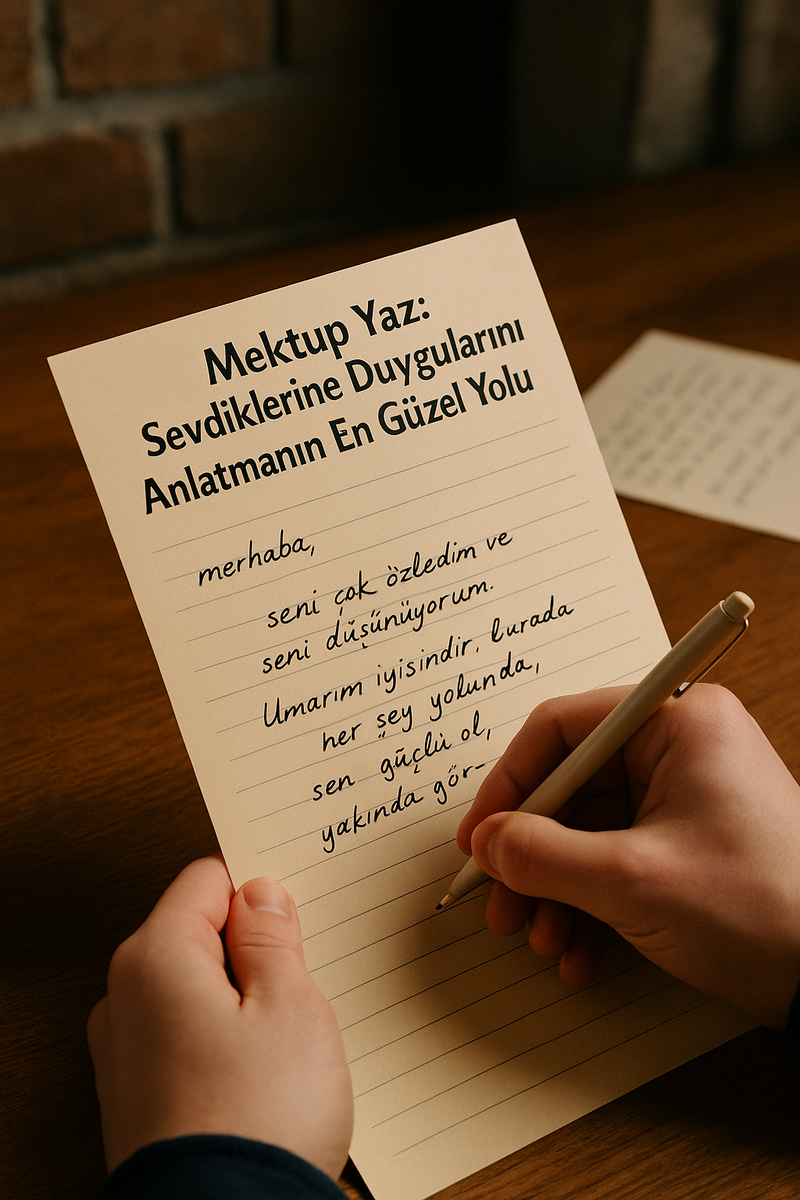 Mektup Yaz:
Sevdiklerine Duygularını
Anlatmanın En Güzel Yolu
merhaba,
seni çok özledim ve
seni düşünüyorum.
Umarım iyisindir, burada
her şey yolunda,
sen güçlü ol,
yakında gör-